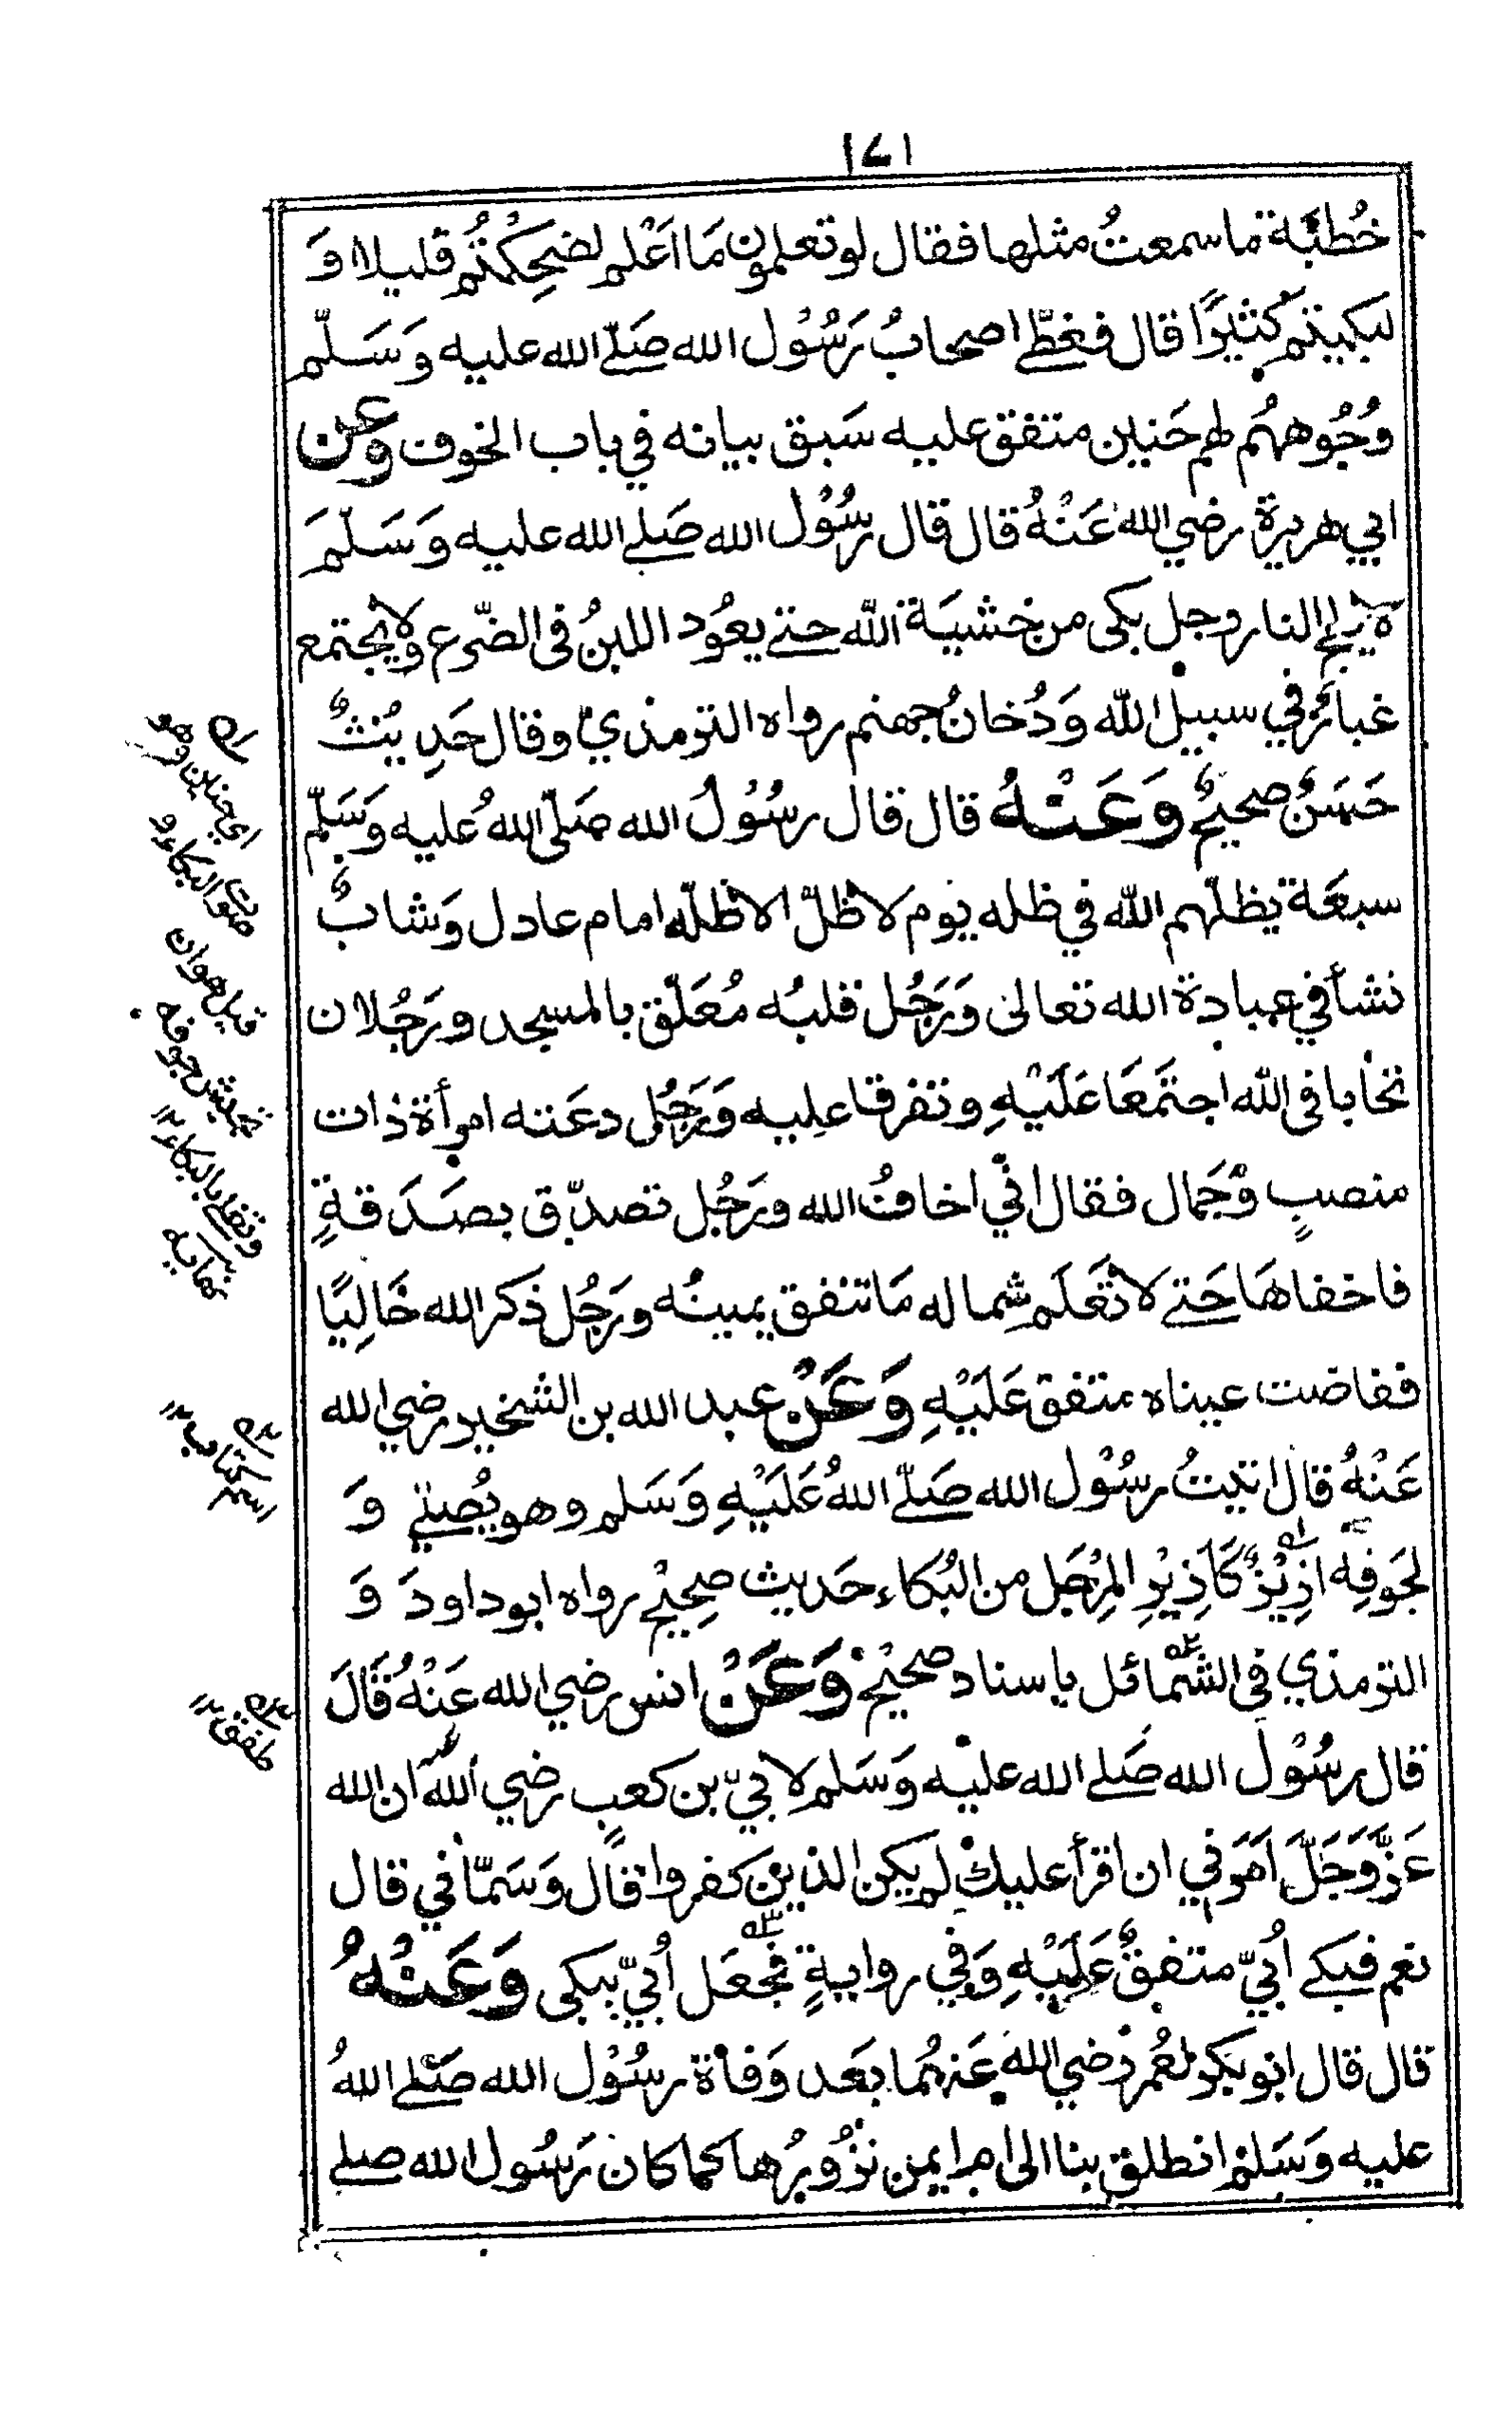 ١٧١
خُطبَة ما سمعتُ مثلها فقال لو تعلمون مَا اَعْلم لضحِكْتُم قليلا وَ
لبكيتم كثيرًا قال فغطّے اصحابُ رَسُوْل الله صَلّے الله عليه وَسَلّم
وُجُوههُم لهم حَنين متفق عليه سَبق بيانه في باب الخوف وَعن
ابي هريرة رضي الله عَنْهُ قال قال رسُوْل الله صَلے الله عليه وَسَلّمَ
لا يلج النار رجل بكى من خشيَة الله حتے يعُود اللبنُ فى الضّرع ولا يجتمع
غبارٌ في سبيل الله وَدُخانُ جهنم رواه الترمذيّ وقال حَدِيْثٌ
حَسَنٌ صحيحٌ وَعَنْهُ قال قال رسُوْلُ الله صَلّى اللهُ عليه وَسَلّم
سبعَة يظلّهم الله في ظله يوم لا ظلّ الا ظلّه امام عادل وَشابٌ
نشأ في عبادة الله تعالى وَرَجُل قلبُه مُعَلّق بالمسجد ورَجُلان
تحابا فى الله اجتمَعَا عَلَيْهِ وتفرقا عليه وَرَجُل دعَته امرأة ذات
منصبٍ وَّجَمال فقال انّي اخافُ الله ورَجُل تصدّق بصَدَقةٍ
فاخفاهَا حَتے لا تَعْلَم شماله مَا تنفق يمينُه ورَجُل ذكر الله خَالِيًا
ففاضت عيناه متفق عَلَيْهِ وَعَنْ عبد الله بن الشخير رضي الله
عَنْهُ قال اتيتُ رسُوْل الله صَلّے اللهُ عَلَيْهِ وَسَلم وهو يُصلے وَ
لجَوفِه ازِيْزٌ كَأَزِيْزِ المِرْجَل من البُكاء حَديث صحِيْح رواه ابو داودَ وَ
الترمذي فى الشمائل باسناد صحيْح وَعَنْ انس رضي الله عَنْهُ قَالَ
قال رسُوْل الله صَلے الله عليْه وَسَلم لابيّ بن كعبٍ رضي الله عنه ان الله
عَزَّوَجَلَّ اَمَرَني ان اقرأ عليك لم يكن الذين كفروا قال وَسَمّاني قال
نعم فبكے اُبيّ متفقٌ عَلَيْهِ وَفي روايةٍ فجعَل اُبيّ يبكى وَعَنْهُ
قال قال ابو بكر لعُمر رَضي الله عَنهُما بعَد وَفاة رسُوْل الله صَلے اللهُ
عليه وَسَلم انطلق بنا الى ام ايمن نزُوْرُها كما كان رَسُول الله صلے
اي حنين وهو
صوت البكاء و
قيل هو ان
يجيش جوفه
ويغلي بالبكاء ١٢
نهايه
اسم كتاب ١٢
طفق ١٢